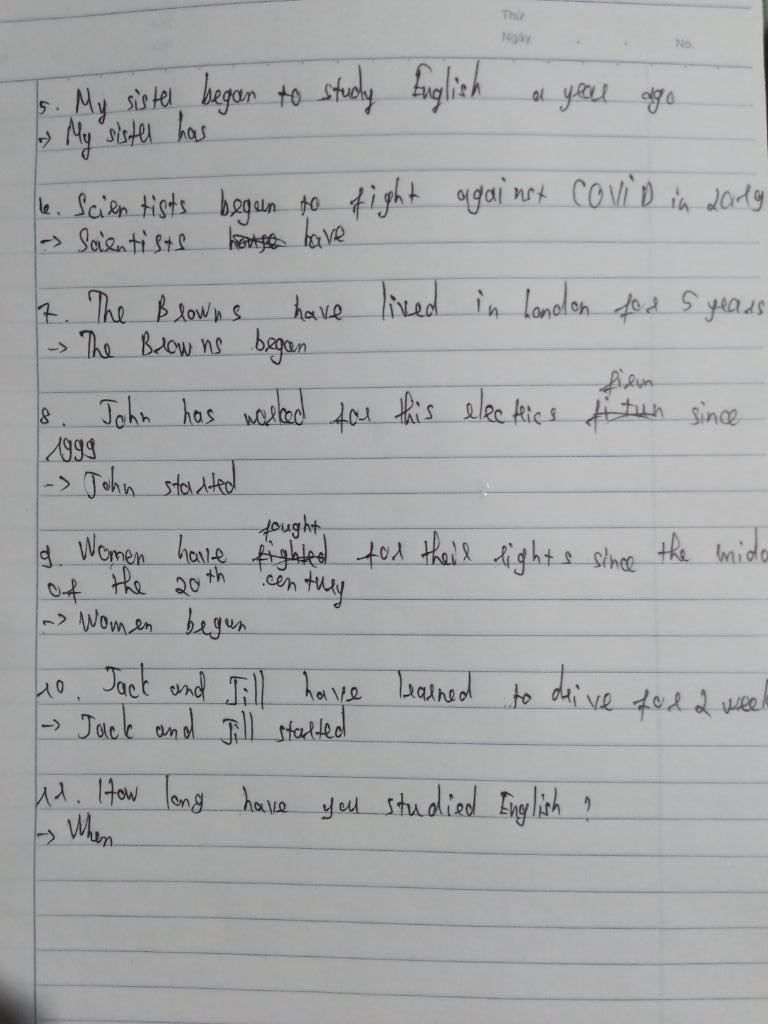 Thứ
Ngày . . No.
5. My sister began to study English a year ago
-> My sister has
6. Scientists began to fight against COVID in 2019
-> Scientists have
7. The Browns have lived in London for 5 years
-> The Browns began
8. John has worked for this electrics firm since
1999
-> John started
9. Women have fought for their rights since the
of the 20th century
-> Women began
10. Jack and Jill have learned to drive for 2 week
-> Jack and Jill started
11. How long have you studied English ?
-> When